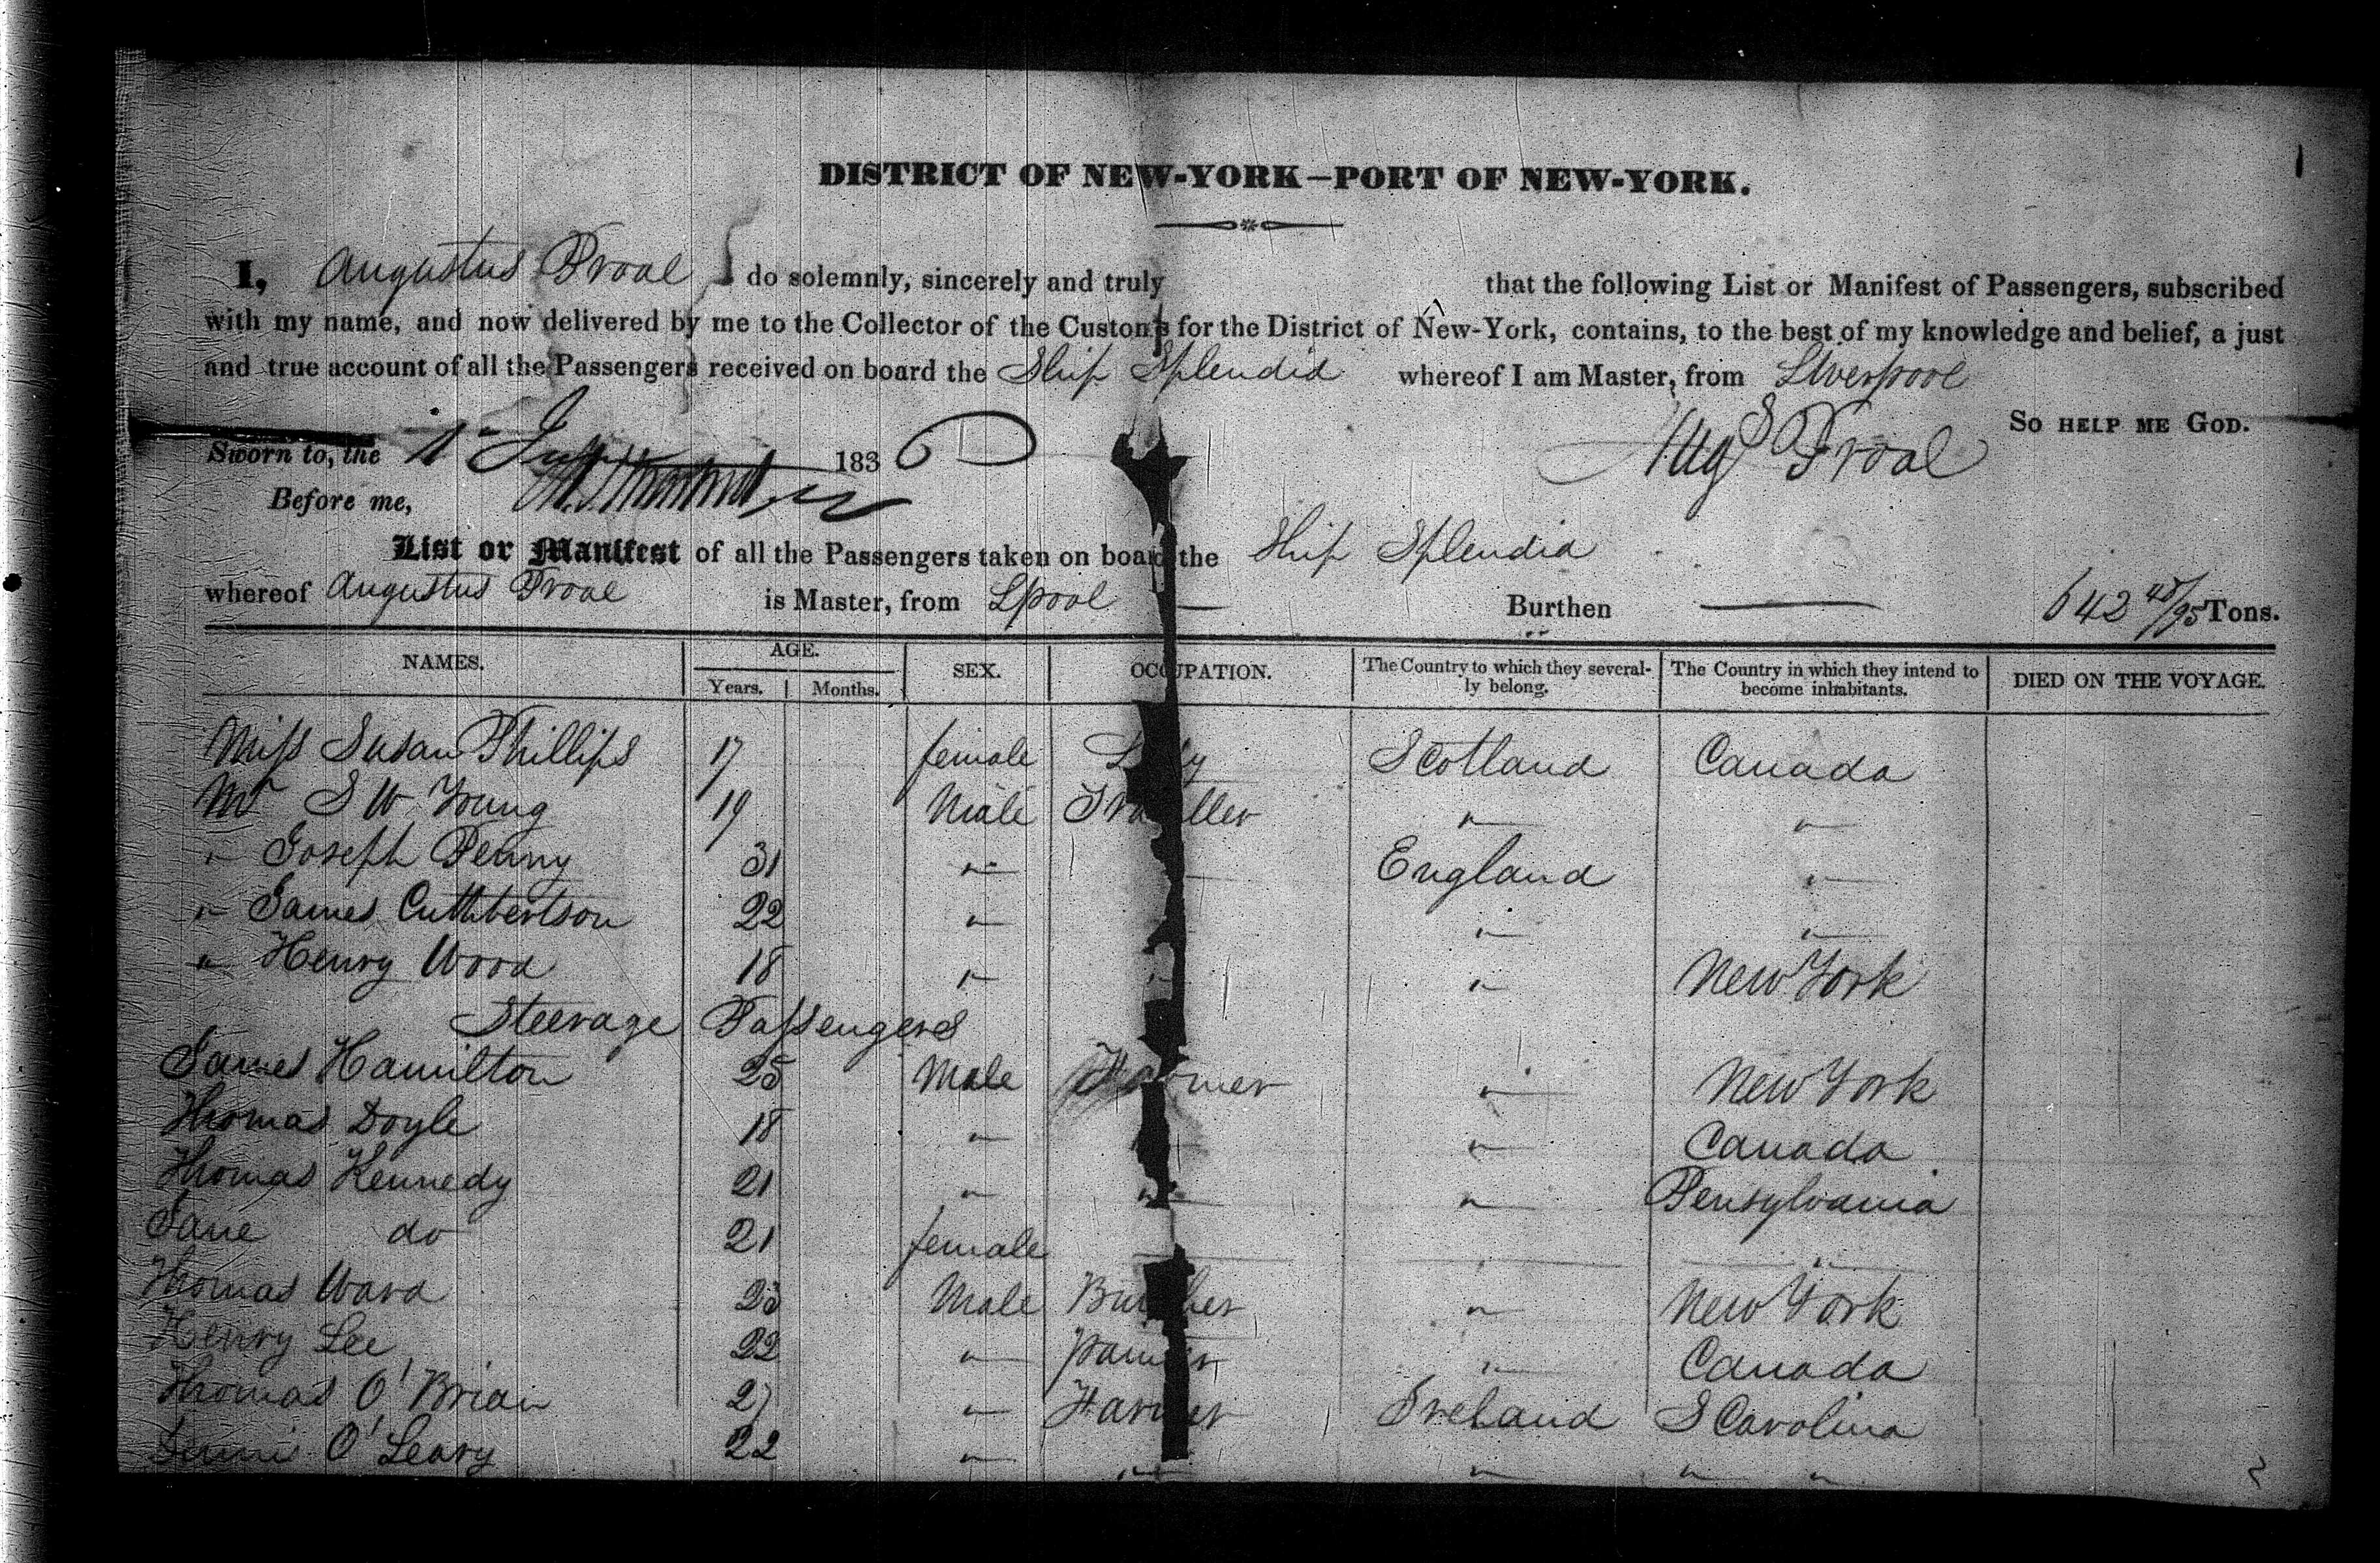 DISTRICT OF NEW-YORK—PORT OF NEW-YORK.
I, Augustus Proal do solemnly, sincerely and truly that the following List or Manifest of Passengers, subscribed
with my name, and now delivered by me to the Collector of the Customs for the District of New-York, contains, to the best of my knowledge and belief, a just
and true account of all the Passengers received on board the Ship Splendid whereof I am Master, from Liverpool
So HELP ME GOD.
Sworn to, the 1st July 1836 Augs Proal
Before me,
List or Manifest of all the Passengers taken on board the Ship Splendid
whereof Augustus Proal is Master, from Lpool — Burthen — 642 45/95 Tons.
NAMES. AGE. Years. Months. SEX. OCCUPATION. The Country to which they severally belong. The Country in which they intend to become inhabitants. DIED ON THE VOYAGE.
Miss Susan Phillips 17 female Lady Scotland Canada
Mr S W Young 19 Male Traveller " "
" Joseph Penny 31 " England "
" James Cuthbertson 22 " " "
" Henry Wood 18 " " " New York
Steerage Passengers
James Hamilton 25 Male Farmer " New York
Thomas Doyle 18 " " Canada
Thomas Kennedy 21 " " " Pensylvania
Jane do 21 female "
Thomas Ward 23 Male Butcher " New York
Henry Lee 22 " painter " Canada
Thomas O'Brian 27 " Farmer Ireland S Carolina
O'Leary 22 " " " " "